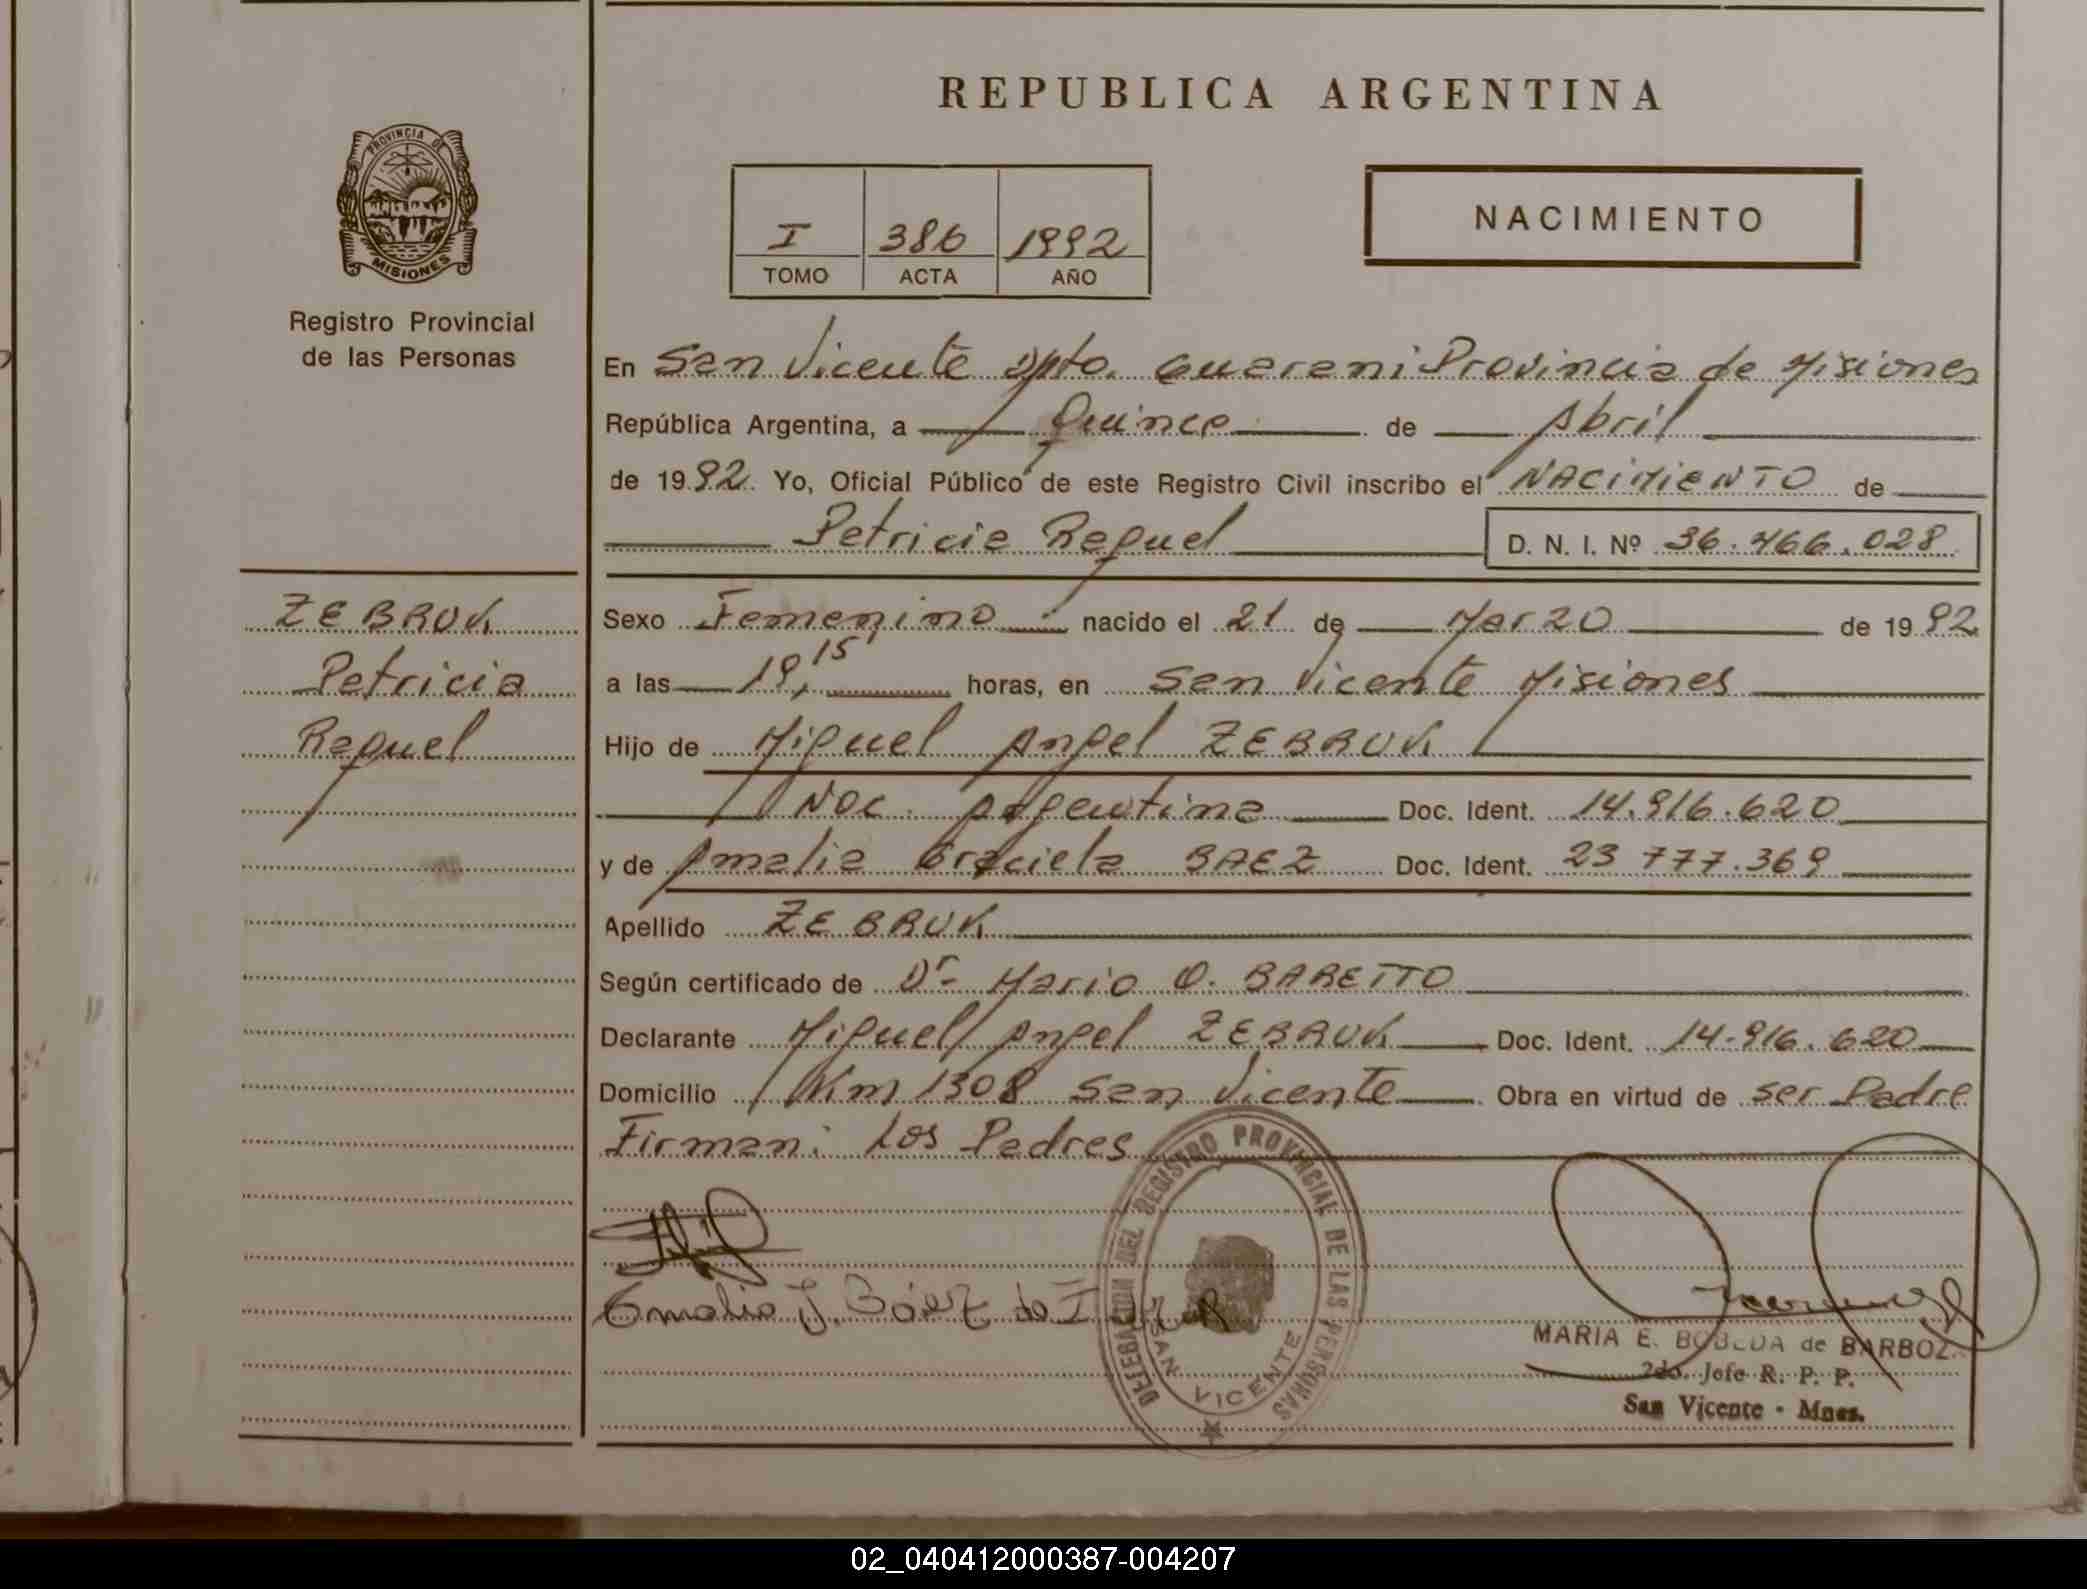 REPUBLICA ARGENTINA
PROVINCIA DE
MISIONES
Registro Provincial
de las Personas
I 386 1992
TOMO ACTA AÑO
NACIMIENTO
En San Vicente Dpto. Guarani Provincia de Misiones
República Argentina, a Quince de Abril
de 1992. Yo, Oficial Público de este Registro Civil inscribo el NACIMIENTO de
Patricia Raquel D. N. I. Nº 36.466.028
ZEBRUK
Patricia
Raquel
Sexo Femenino nacido el 21 de Marzo de 1992
a las 19,15 horas, en San Vicente Misiones
Hijo de Miguel Angel ZEBRUK
Nac. Argentina Doc. Ident. 14.916.620
y de Amalia Graciela BAEZ Doc. Ident. 23 777.369
Apellido ZEBRUK
Según certificado de Dr. Mario O. BARETTO
Declarante Miguel Angel ZEBRUK Doc. Ident. 14.916.620
Domicilio Km 1308 San Vicente Obra en virtud de ser Padre
Firman: Los Padres
DELEGACION DEL REGISTRO PROVINCIAL DE LAS PERSONAS
SAN VICENTE
MARIA E. BOBEDA de BARBOZ
2do. Jefe R. P. P.
San Vicente - Mnes.
02_040412000387-004207